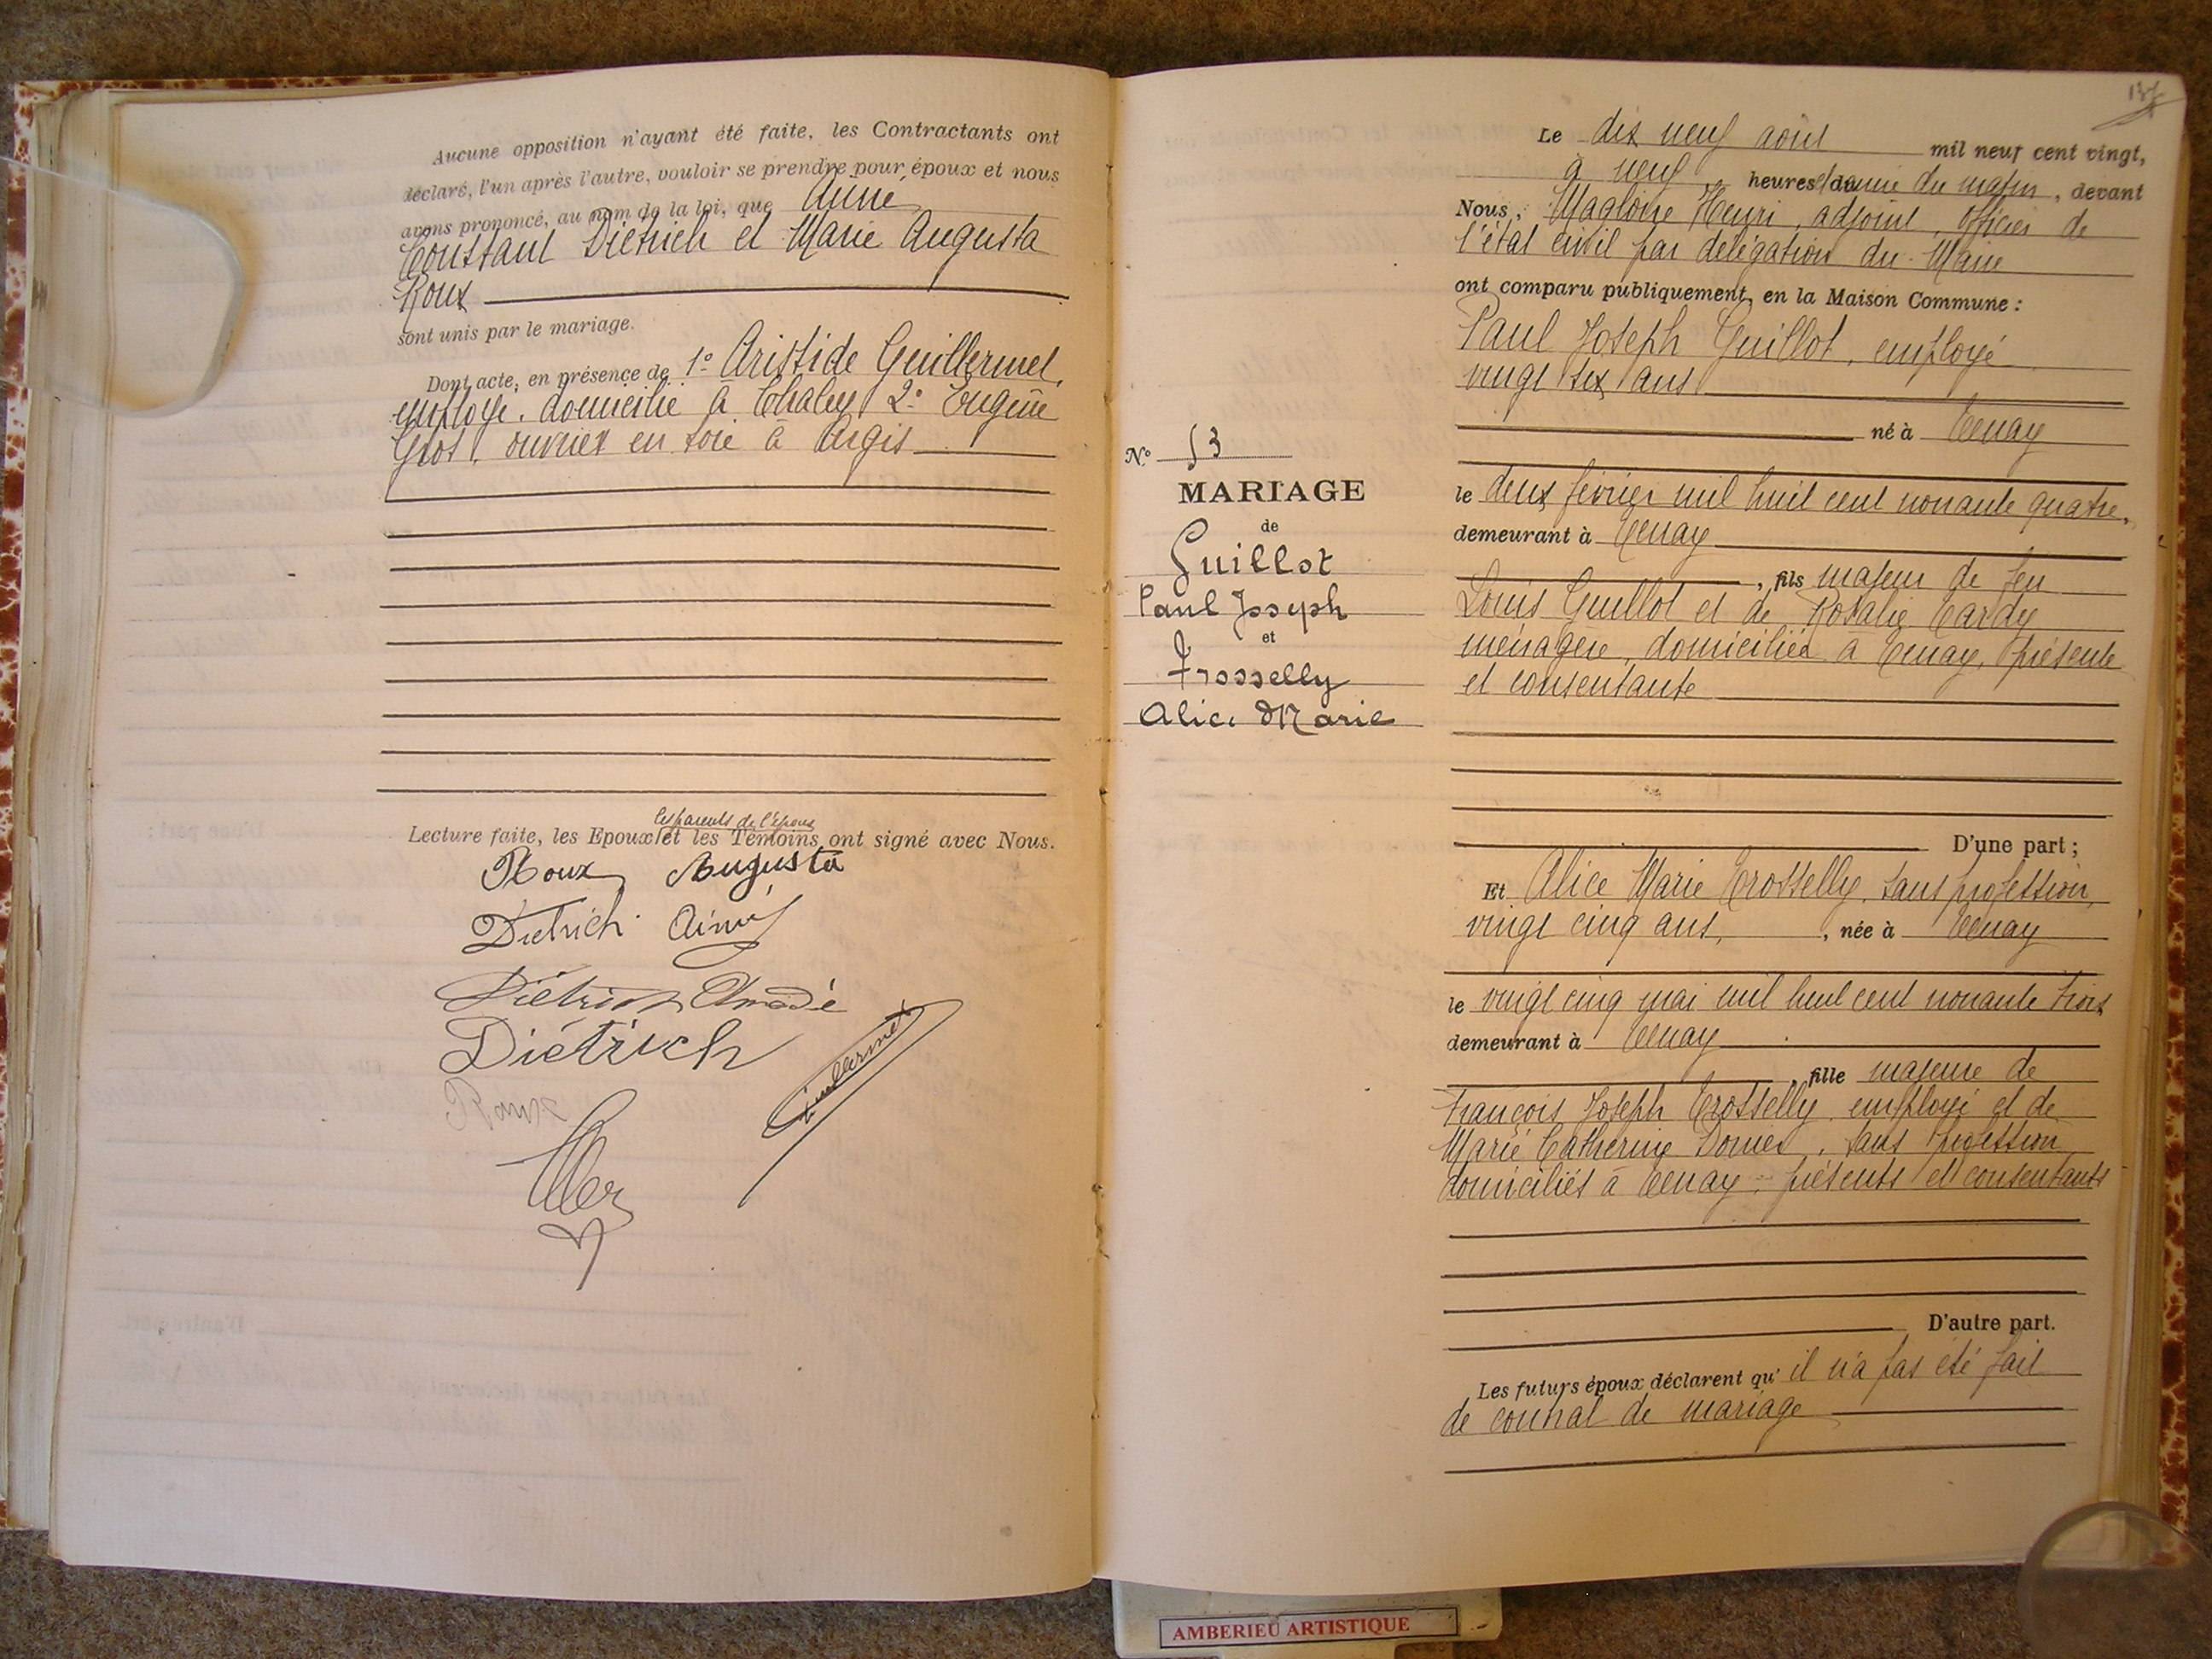 Aucune opposition n'ayant été faite, les Contractants ont
déclaré, l'un après l'autre, vouloir se prendre pour époux et nous
avons prononcé, au nom de la loi, que Aimé
Constant Diétrich et Marie Augusta
Roux
sont unis par le mariage.
Dont acte, en présence de 1° Aristide Guillermet,
employé, domicilié à Chaley 2° Eugène
Grot, ouvrier en soie à Argis
les parents de l'époux
Lecture faite, les Epoux et les Témoins ont signé avec Nous.
Roux Augusta
Dietrich Aimé
Diétrich Amédé
Diétrich
Guillermet
Roux
137
Le dix neuf août mil neuf cent vingt,
à neuf heures du matin, devant
Nous, Magloire Henri, adjoint, officier de
l'état civil par délégation du Maire
ont comparu publiquement, en la Maison Commune :
Paul Joseph Guillot, employé
vingt six ans
né à Tenay
le deux février mil huit cent nonante quatre,
demeurant à Tenay
, fils majeur de feu
Louis Guillot et de Rosalie Tardy
ménagère, domiciliée à Tenay, présente
et consentante
N° 13
MARIAGE
de
Guillot
Paul Joseph
et
Trosselly
Alice Marie
D'une part ;
Et Alice Marie Trosselly, sans profession,
vingt cinq ans, , née à Tenay
le vingt cinq mai mil huit cent nonante trois
demeurant à Tenay
, fille majeure de
François Joseph Trosselly employé et de
Marie Catherine Dornier, sans profession
domiciliés à Tenay, présents et consentants
D'autre part.
Les futurs époux déclarent qu' il n'a pas été fait
de contrat de mariage
AMBERIEU ARTISTIQUE